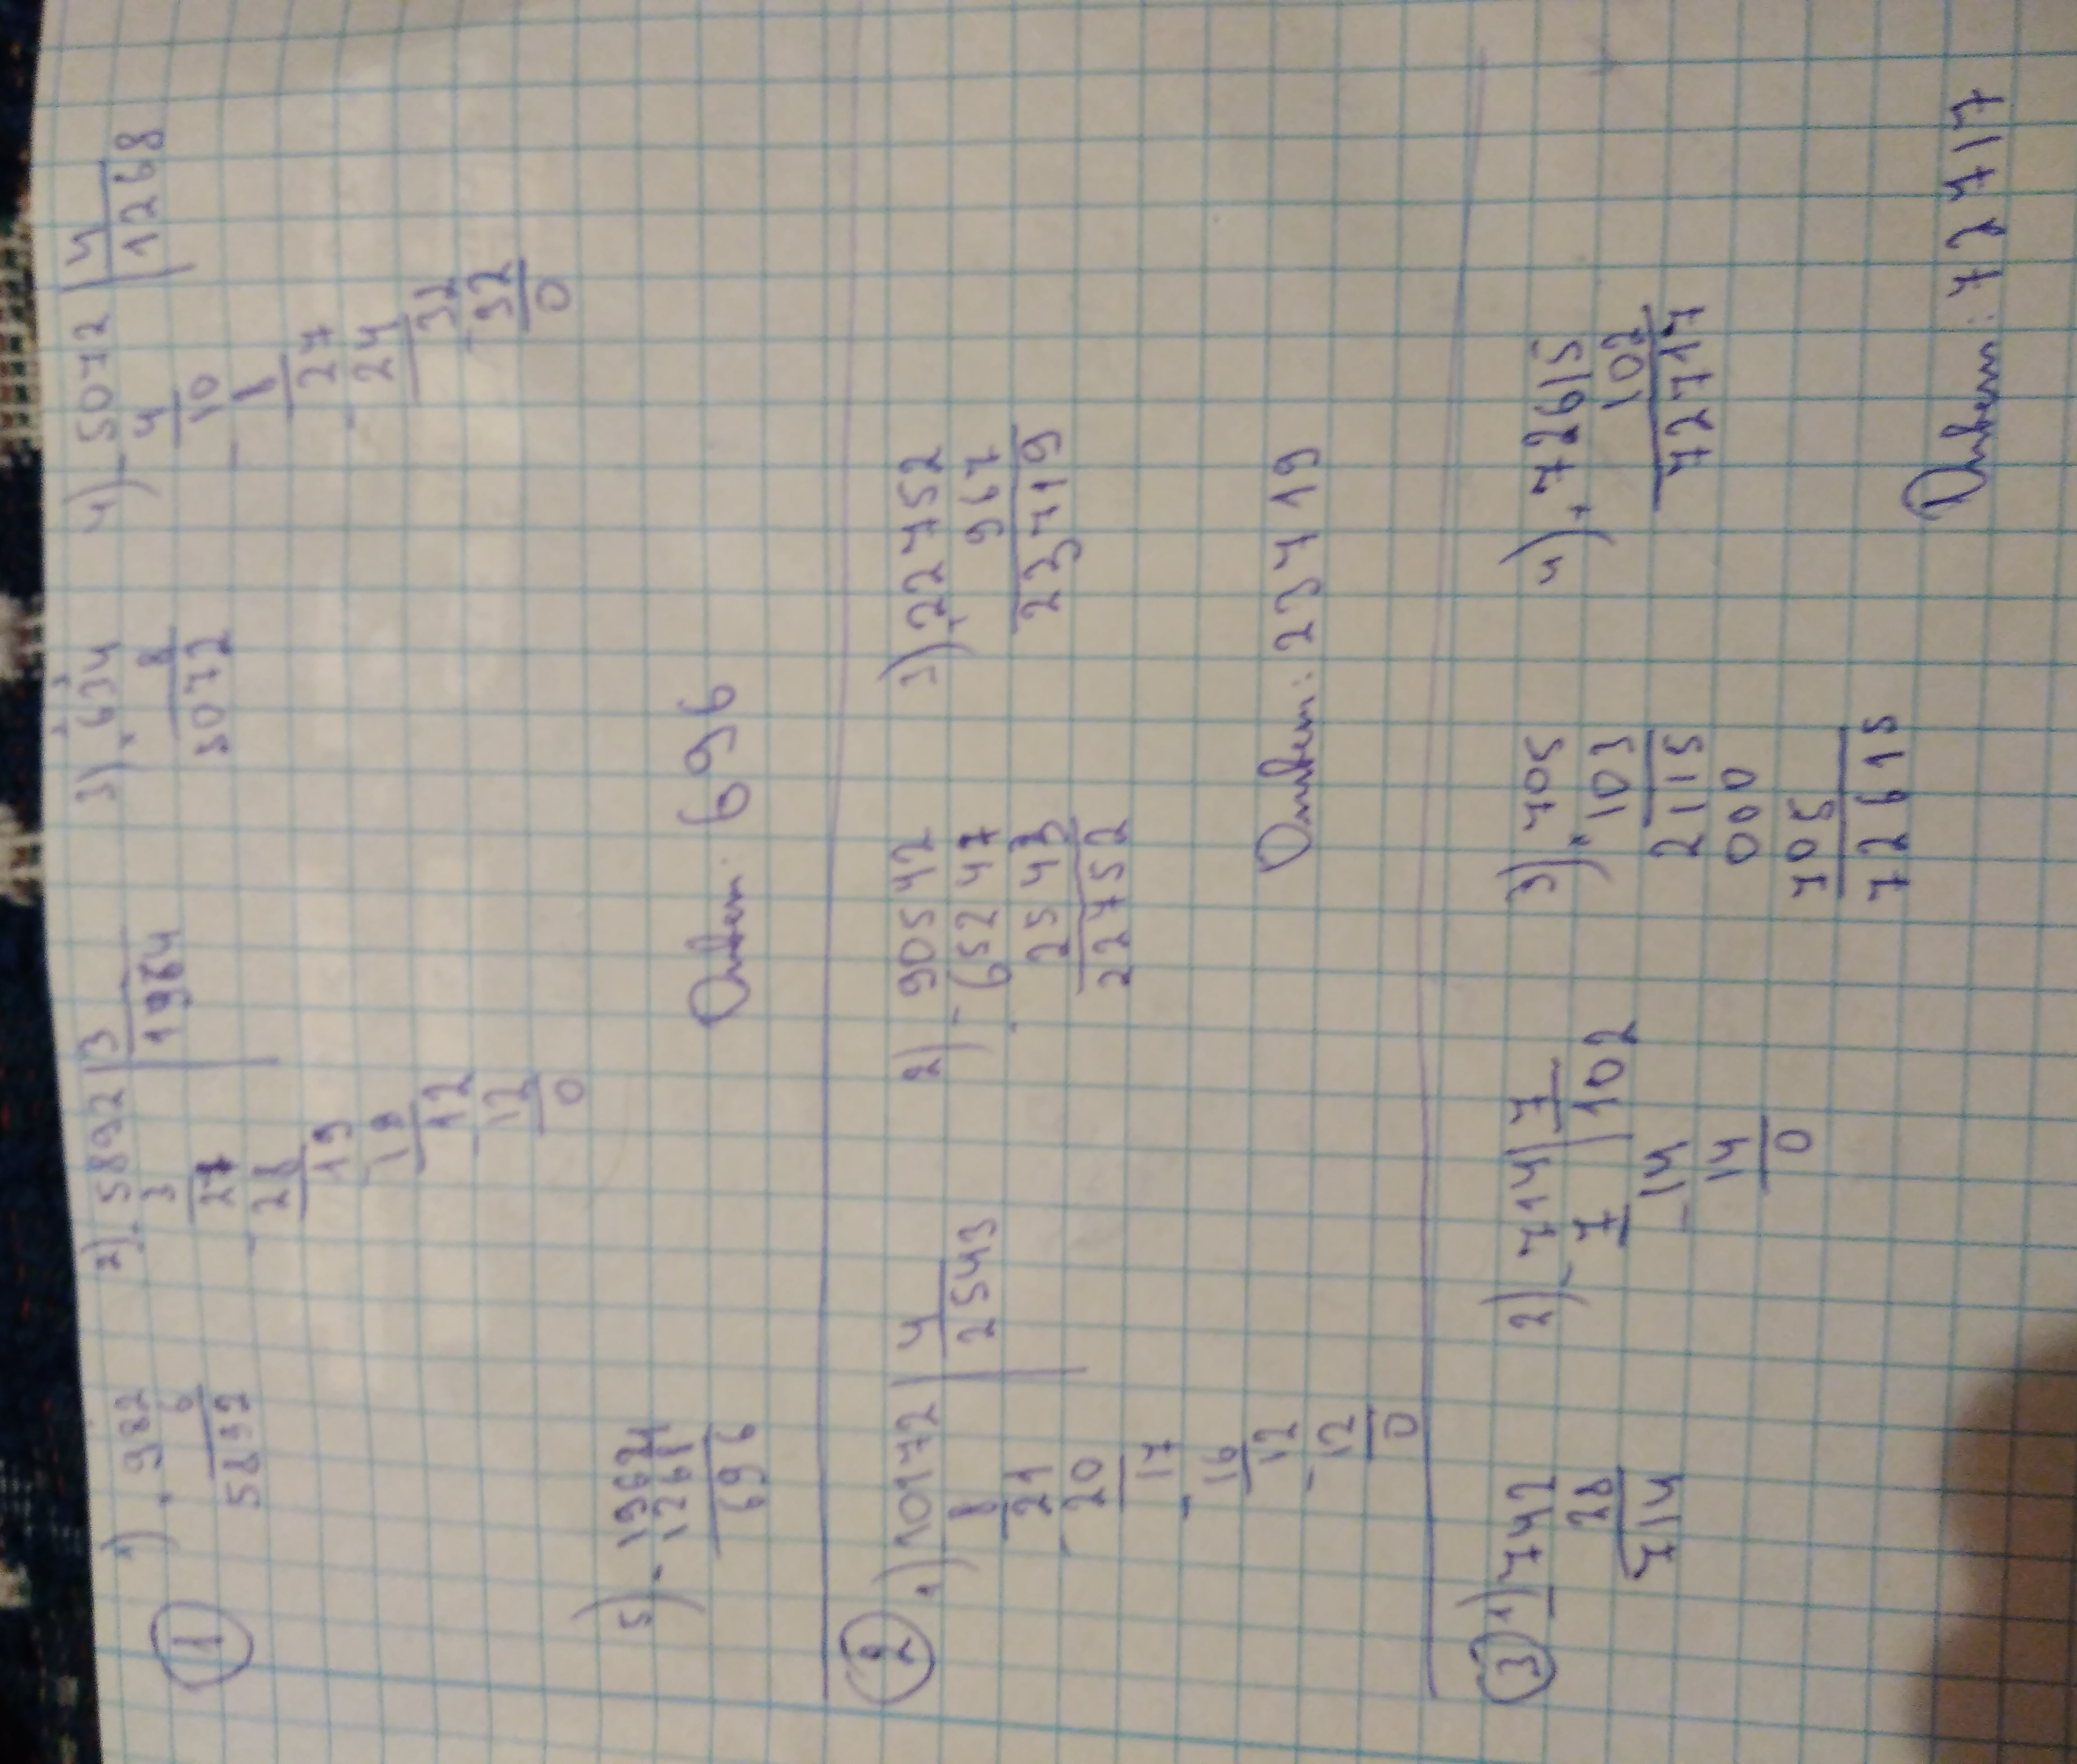 1
1) × 982
6
5892
2) - 5892 | 3
3 | 1964
27
- 28
19
- 18
12
- 12
0
3) × 634
8
5072
4) - 5072 | 4
4 | 1268
10
- 8
27
- 24
32
- 32
0
5) - 1964
1268
696
Ответ: 696
2
1) 10172 | 4
8 | 2543
21
- 20
17
- 16
12
- 12
0
2) - 90542
- 65247
2543
22752
3) + 22752
967
23719
Ответ: 23719
3
1) - 742
28
714
2) - 714 | 7
7 | 102
- 14
14
0
3) × 705
103
2115
000
705
72615
4) + 72615
102
72717
Ответ: 72717